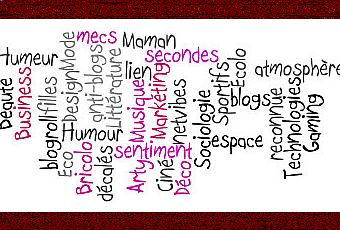 mecs
Maman
Humeur
secondes
lien
atmosphère
Beauté
Business
blogroll
filles
Design
Mode
anti-blogs
Littérature
Musique
Marketing
netvibes
Sociologie
Sportifs
Ecolo
blogs
Humour
espace
reconnue
Technologies
Gaming
sentiment
Eco
Bricolo
décalés
Arty
Ciné
Déco